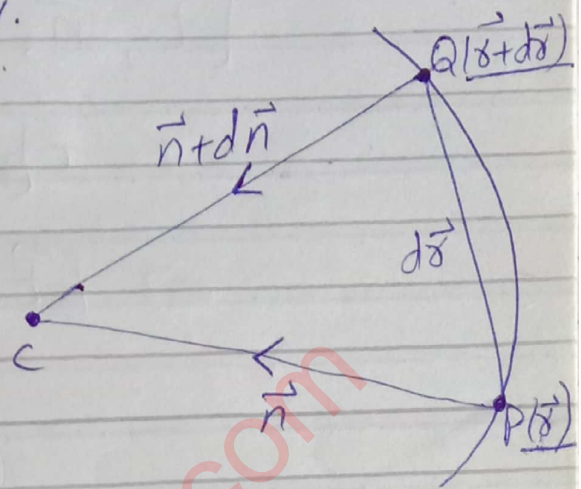 Q(r⃗+dr⃗)
n⃗+dn⃗
dr⃗
C
n⃗
P(r⃗)
com